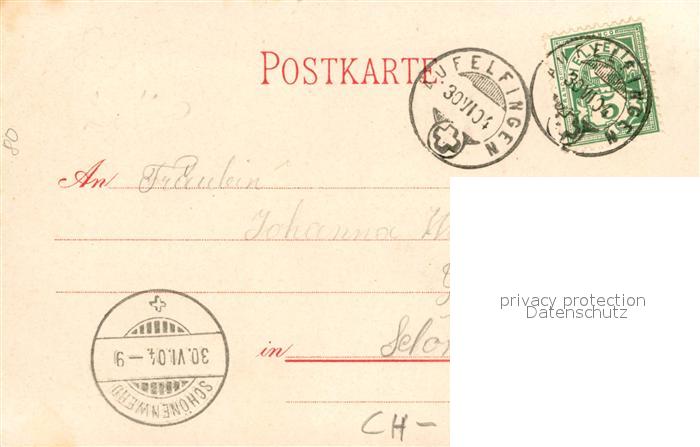 POSTKARTE.
BUFELFINGEN
30 VI 04
HELVETIA
5
80
An Fräulein
Johanna
privacy protection
Datenschutz
SCHÖNENWERD
30.VI.04.-9
in Schön
CH-